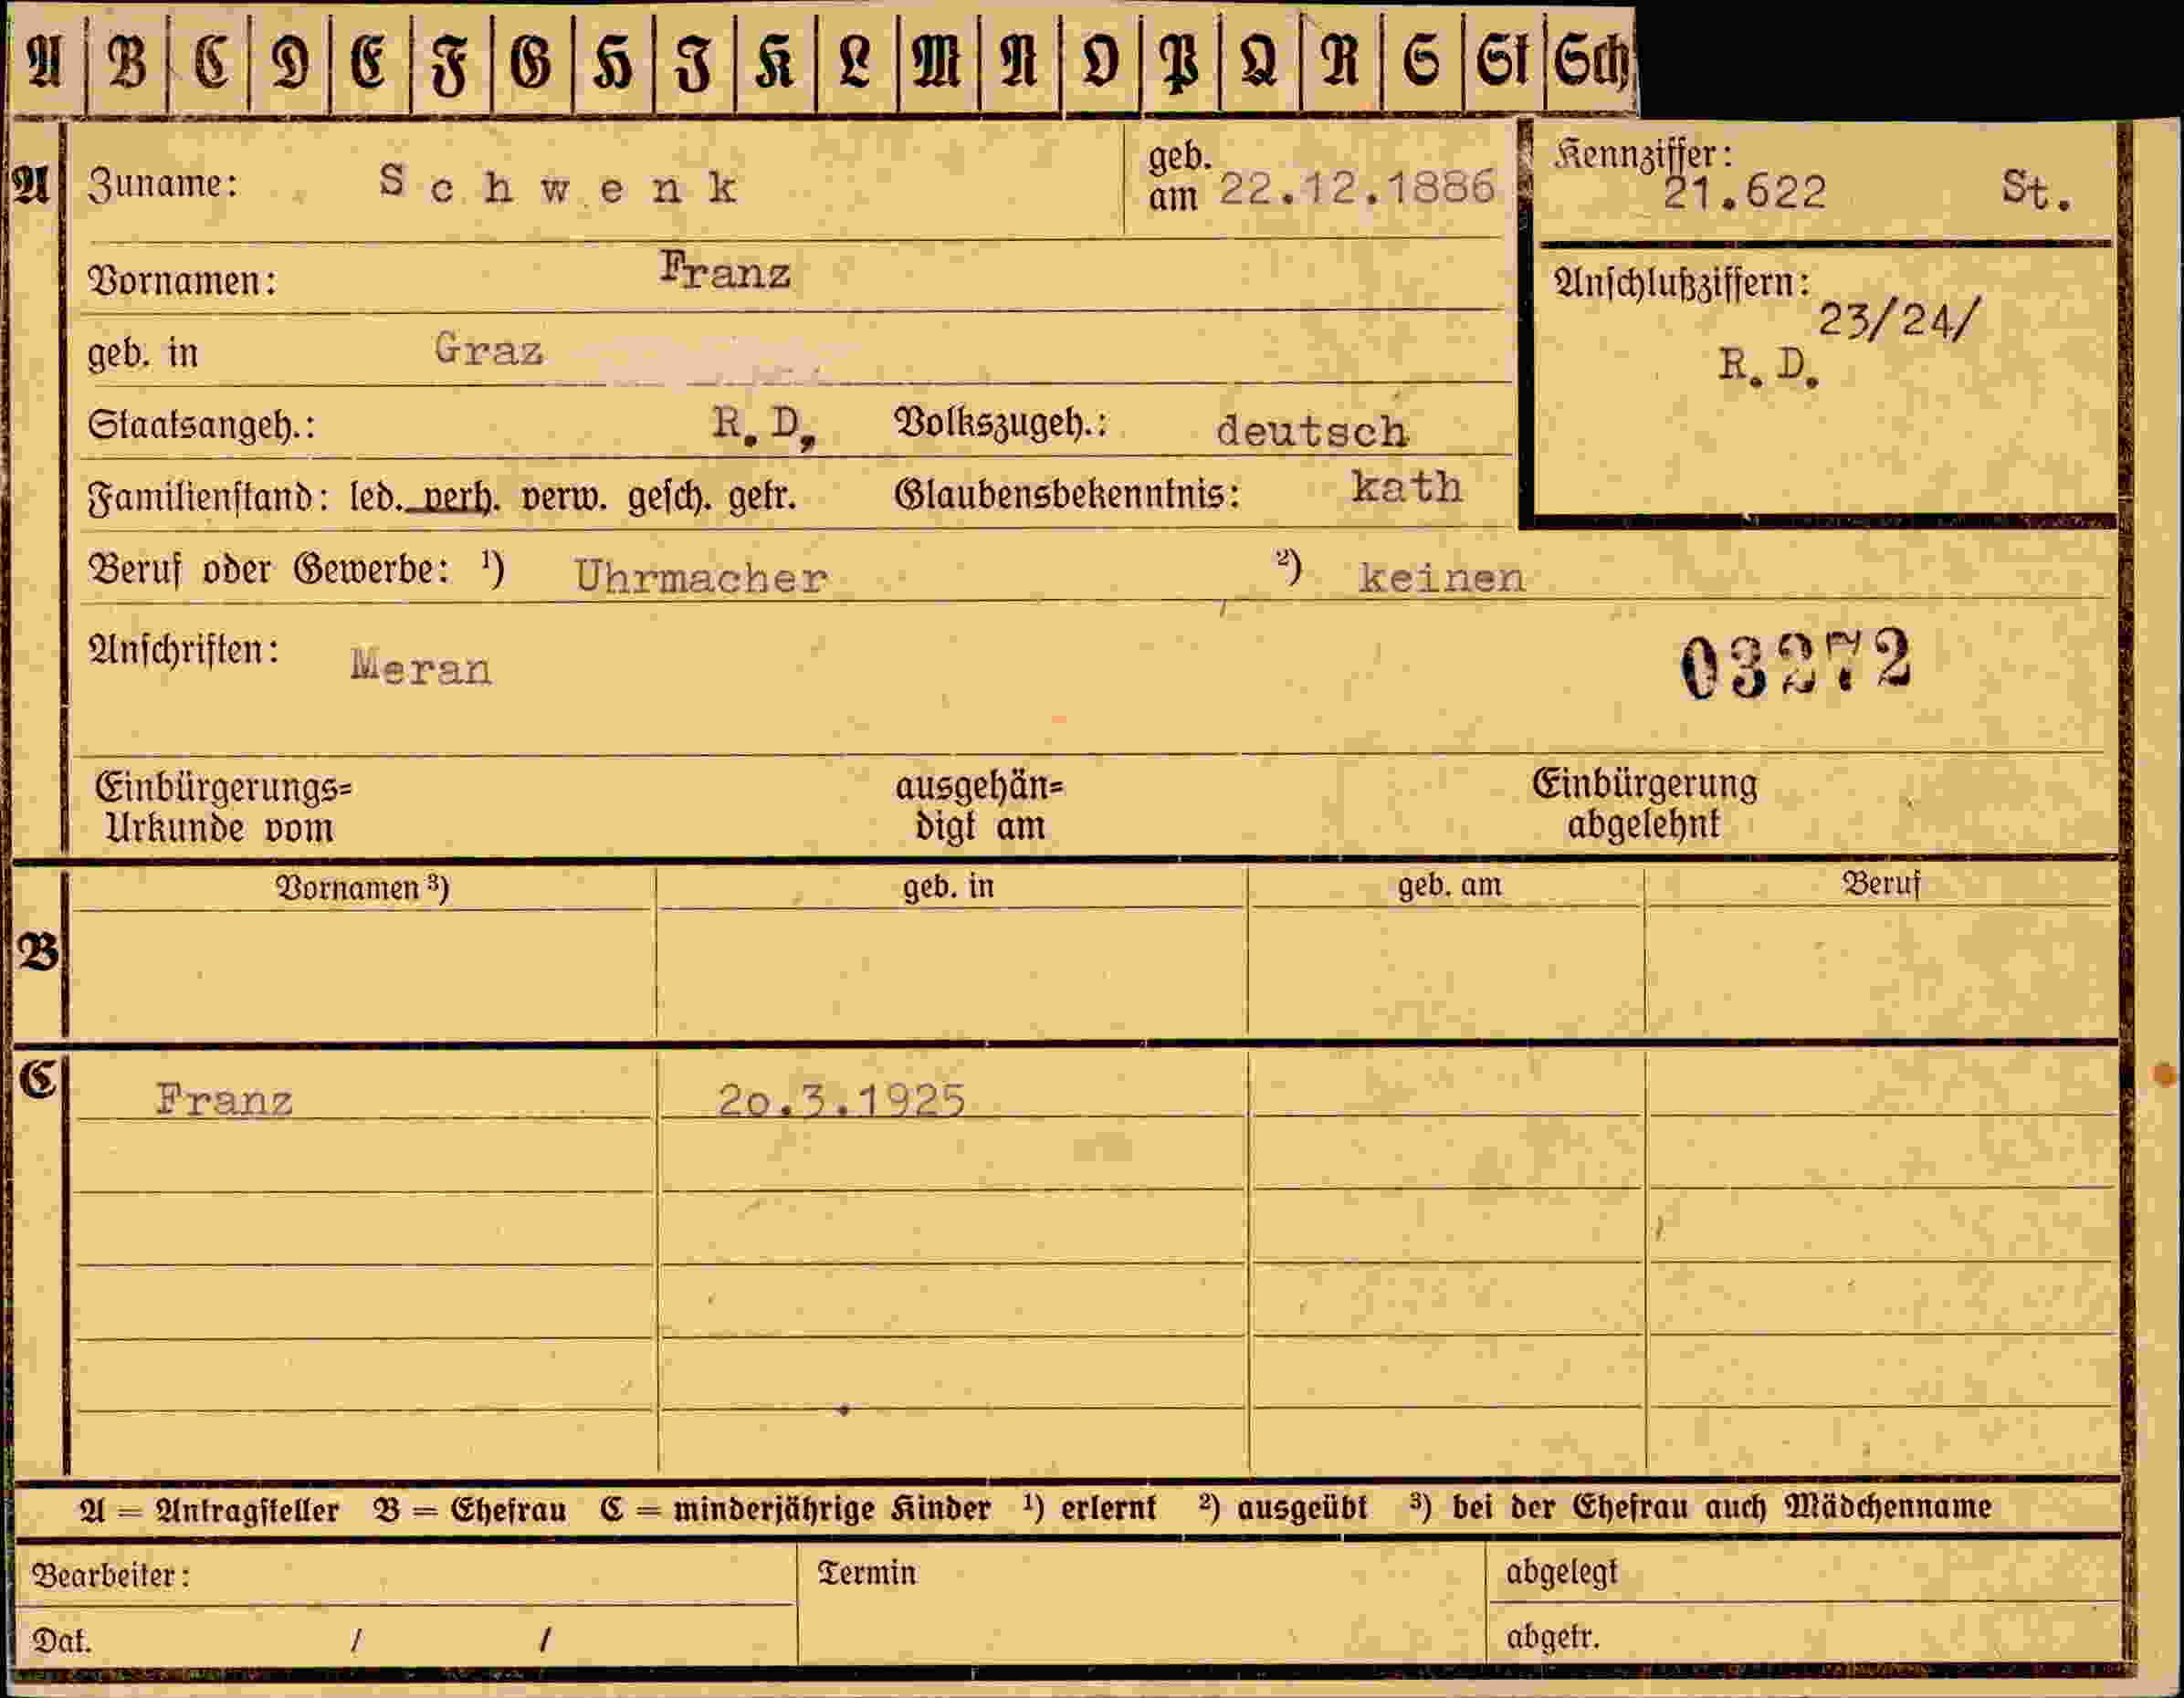 A B C D E F G H I K L M N O P Q R S St Sch
A Zuname: Schwenk geb. am 22.12.1886 Kennziffer: 21.622 St.
Vornamen: Franz
Anschlußziffern: 23/24/
R.D.
geb. in Graz
Staatsangeh.: R.D, Volkszugeh.: deutsch
Familienstand: led. verh. verw. gesch. getr. Glaubensbekenntnis: kath
Beruf oder Gewerbe: ¹) Uhrmacher ²) keinen
Anschriften: Meran 03272
Einbürgerungs= ausgehän= Einbürgerung
Urkunde vom digt am abgelehnt
B Vornamen ³) geb. in geb. am Beruf
C Franz 20.3.1925
A = Antragsteller B = Ehefrau C = minderjährige Kinder ¹) erlernt ²) ausgeübt ³) bei der Ehefrau auch Mädchenname
Bearbeiter: Termin abgelegt
Dat. / / abgetr.